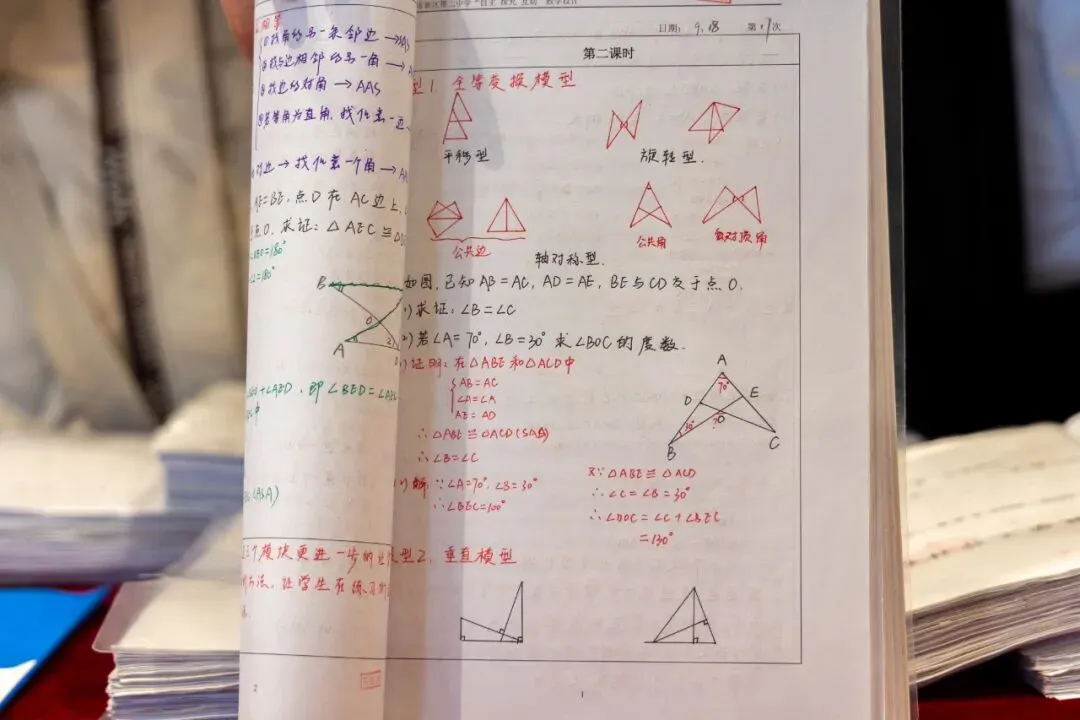 ①找角的另一条邻边→SAS
②找与边相邻的另一角→A
③找边的对角→AAS
④若等角为直角，找任意一边
对边→找任意一个角→AA
AE=BE，点D在AC边上，
点O. 求证：△AEC≌△
=180°
=180°
B
O
A
2
+∠AED，即∠BED=∠AEC
中
(ASA)
个模块更进一步的
方法，让学生在练习
2
"自主 探究 互助" 教学设计
日期： 9.18 第 17 次
第二课时
型1. 全等变换模型
平移型
旋转型.
公共边
公共角
有对顶角
轴对称型.
如图，已知AB=AC，AD=AE，BE与CD交于点O.
1)求证：∠B=∠C
2)若∠A=70°，∠B=30°求∠BOC的度数.
1)证明：在△ABE和△ACD中
AB=AC
∠A=∠A
AE=AD
∴△ABE≌△ACD(SAS)
∴∠B=∠C
解：∵∠A=70°，∠B=30°
∴∠BEC=100°
又∵△ABE≌△ACD
∴∠C=∠B=30°
∴∠BOC=∠C+∠BEC
=130°
A
70°
D
E
30°
?
O
B
C
型2. 垂直模型
1